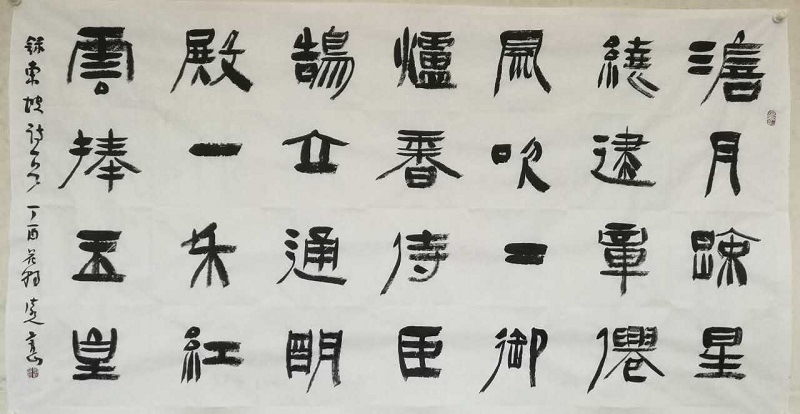 澹月疎星
繞建章僊
風吹下御
爐香侍臣
鵠立通明
殿一朵紅
雲捧玉皇
錄東坡詩 丁酉